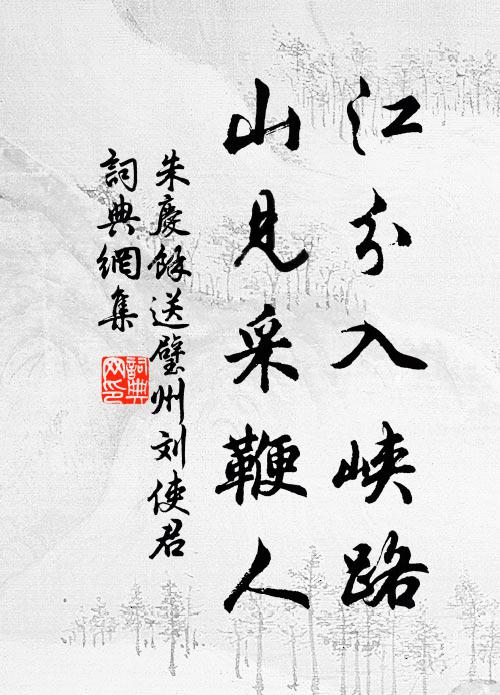 江分入峽路
山見采鞭人
朱慶餘送璧州刘使君
詞典網集
詞典網印